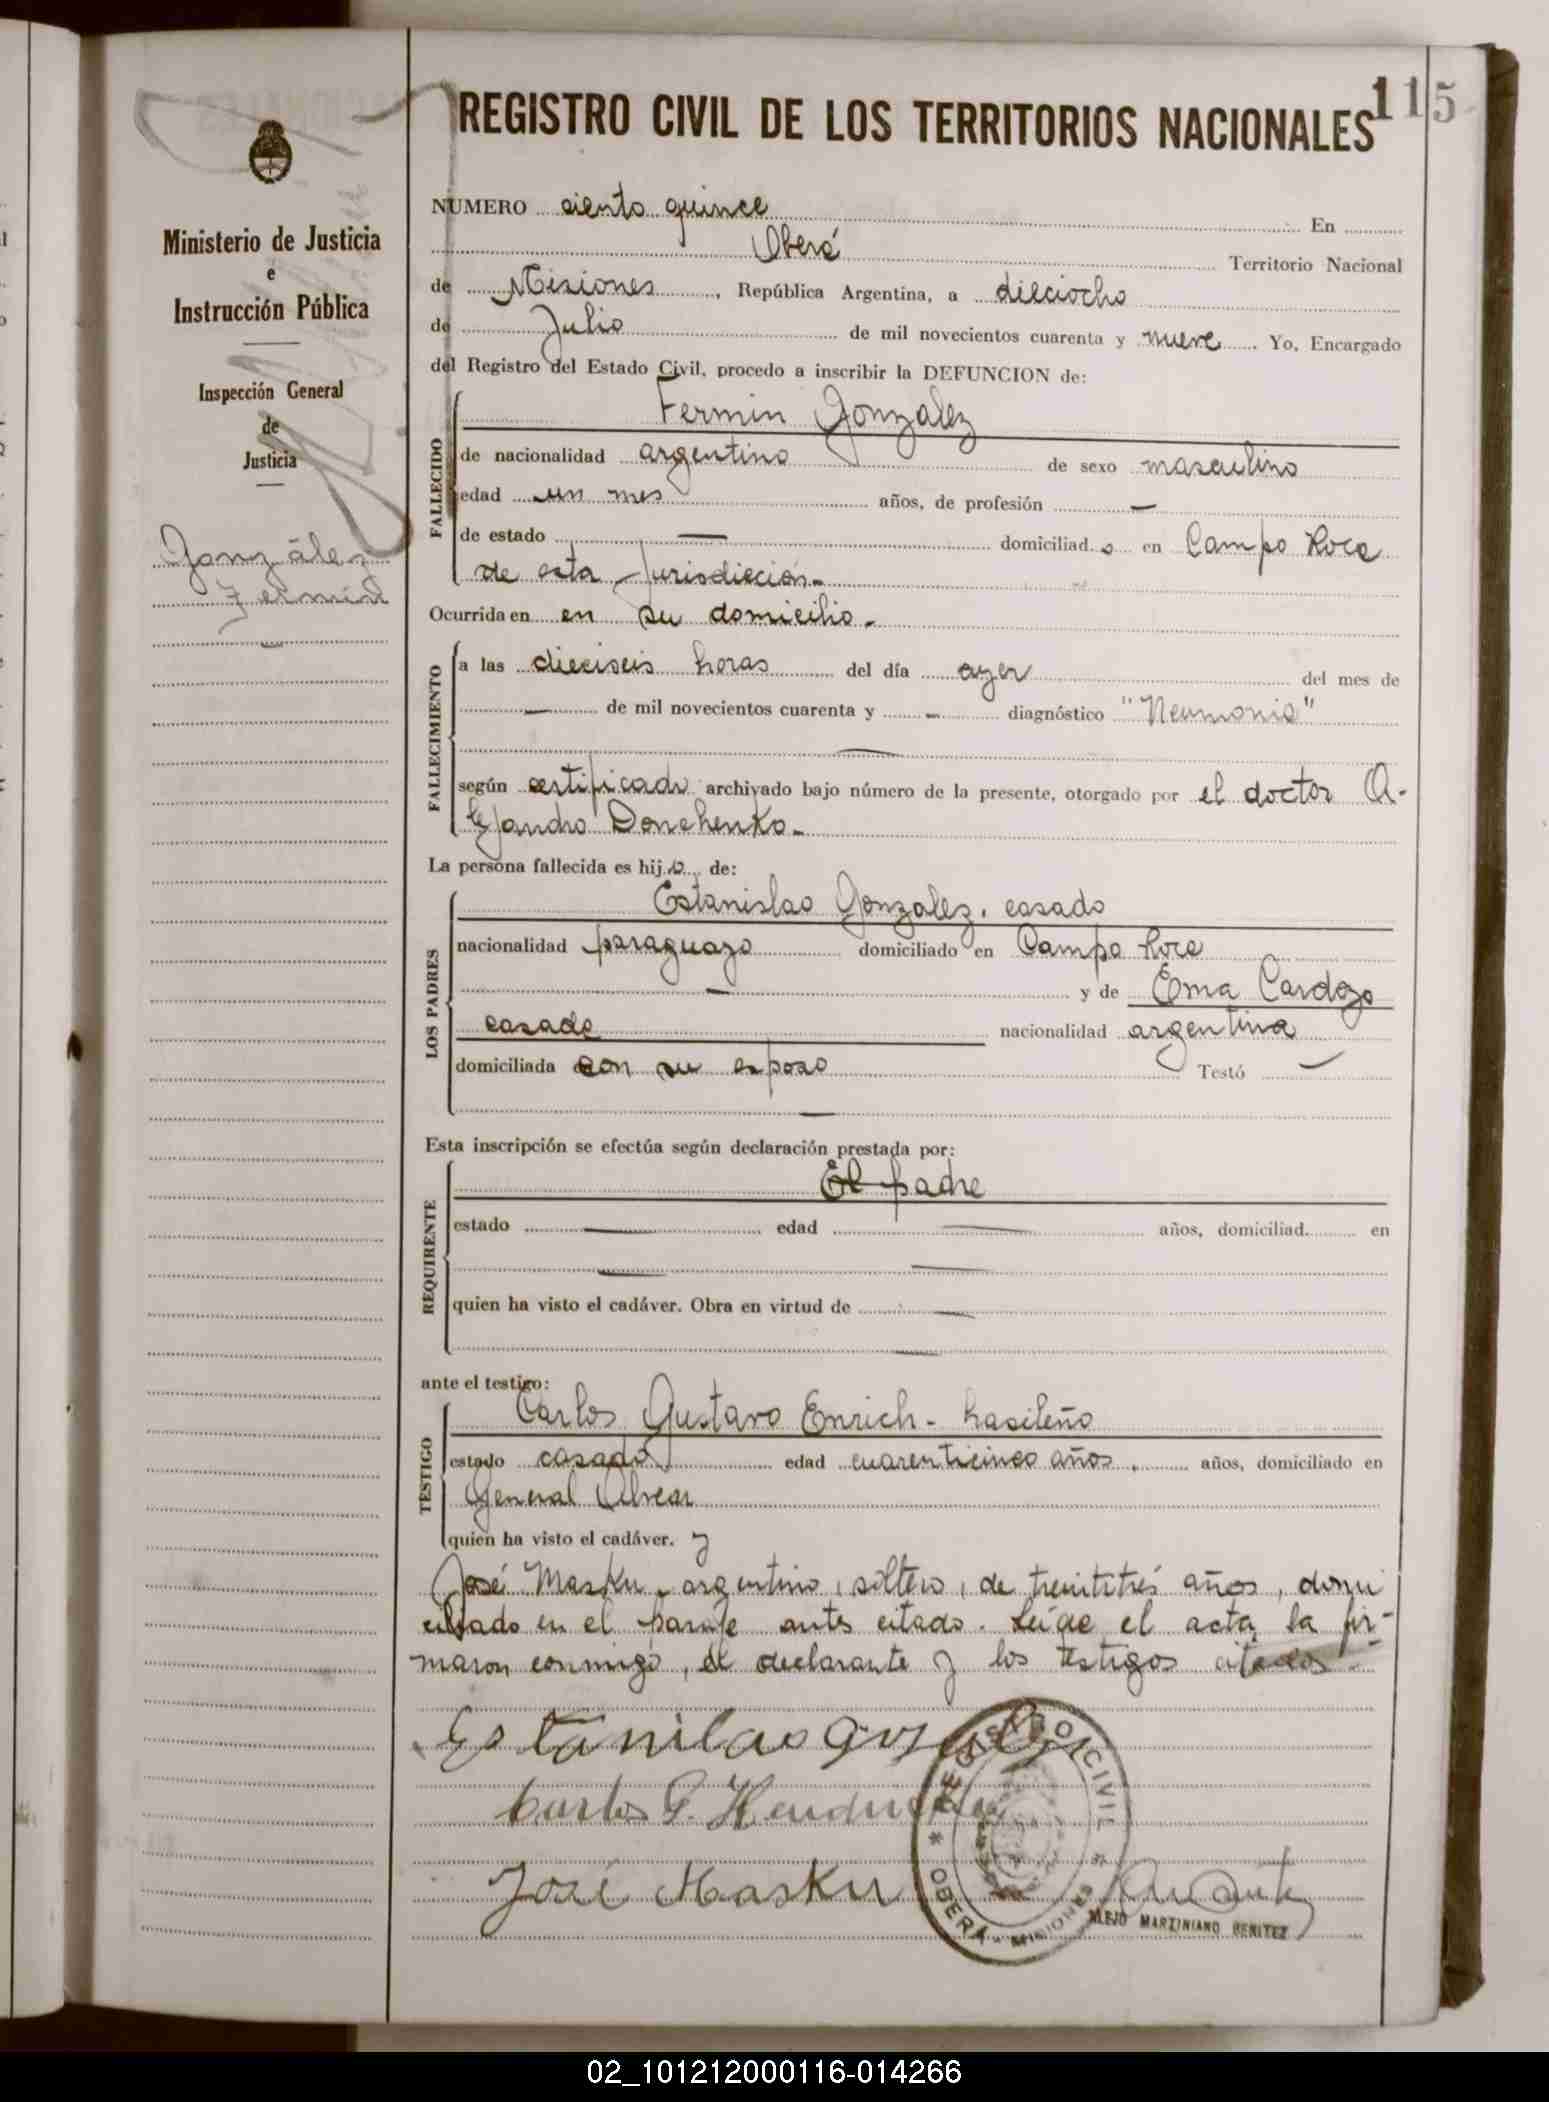 115
REGISTRO CIVIL DE LOS TERRITORIOS NACIONALES
Ministerio de Justicia
e
Instrucción Pública
Inspección General
de
Justicia
González
Fermín
NUMERO ciento quince En
Oberá Territorio Nacional
de Misiones, República Argentina, a dieciocho
de Julio de mil novecientos cuarenta y nueve Yo, Encargado
del Registro del Estado Civil, procedo a inscribir la DEFUNCION de:
FALLECIDO
Fermin Gonzalez
de nacionalidad argentino de sexo masculino
edad un mes años, de profesión —
de estado — domiciliad o en Campo Roca
de esta Jurisdicción.-
Ocurrida en en su domicilio.-
FALLECIMIENTO
a las dieciseis horas del día ayer del mes de
— de mil novecientos cuarenta y — diagnóstico "Neumonia"
—
según certificado archivado bajo número de la presente, otorgado por el doctor A-
lejandro Donchenko.-
La persona fallecida es hijo de:
LOS PADRES
Estanislao Gonzalez. casado
nacionalidad paraguayo domiciliado en Campo Roca
— y de Ema Cardozo
casada nacionalidad argentina
domiciliada con su esposo Testó —
—
Esta inscripción se efectúa según declaración prestada por:
REQUIRENTE
El padre
estado — edad — años, domiciliad en
— —
quien ha visto el cadáver. Obra en virtud de —
—
ante el testigo:
TESTIGO
Carlos Gustavo Enrich- brasileño
estado casado edad cuarenticinco años. años, domiciliado en
General Alvear
quien ha visto el cadáver. y
José Masku, argentino, soltero, de treintitrés años, domi
ciliado en el paraje antes citado. Leída el acta, la fir-
maron conmigo, el declarante y los testigos citados.-
Estanilao
Carlos G.
José Masku
REGISTRO CIVIL
* OBERA - MISIONES *
ALEJO MARZINIANO BENITEZ
02_101212000116-014266